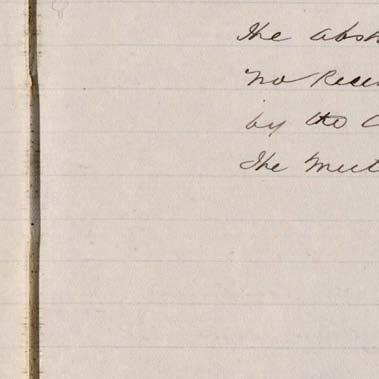 the abs
No Rece
by the
The Meet